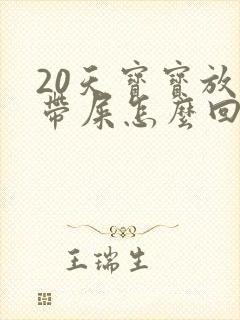 20天寶寶放
帶屎怎麼回
王瑞生